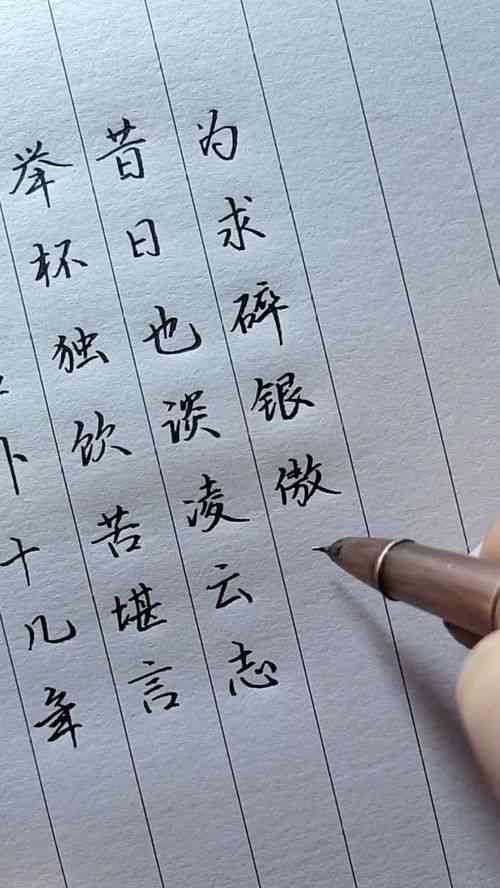 十几年
举杯独饮苦堪言
昔日也谈凌云志
为求碎银傲